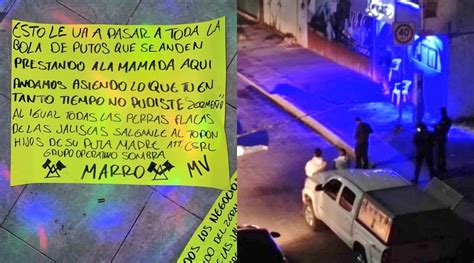 ESTO LE VA A PASAR A TODA LA
BOLA DE PUTOS QUE SE ANDEN
PRESTANDO A LA MAMADA AQUI
ANDAMOS ASIENDO LO QUE TU EN
TANTO TIEMPO NO PUDISTE "ZERMEÑO"
AL IGUAL TODAS LAS PERRAS FLACAS
DE LAS JALISCAS SALGANLE AL TOPON
HIJOS DE SU PUTA MADRE ATT CSRL
GRUPO OPERATIVO SOMBRA
MARRO MV
DOS LOS NEGOCIO
DO DEL ZERM
40